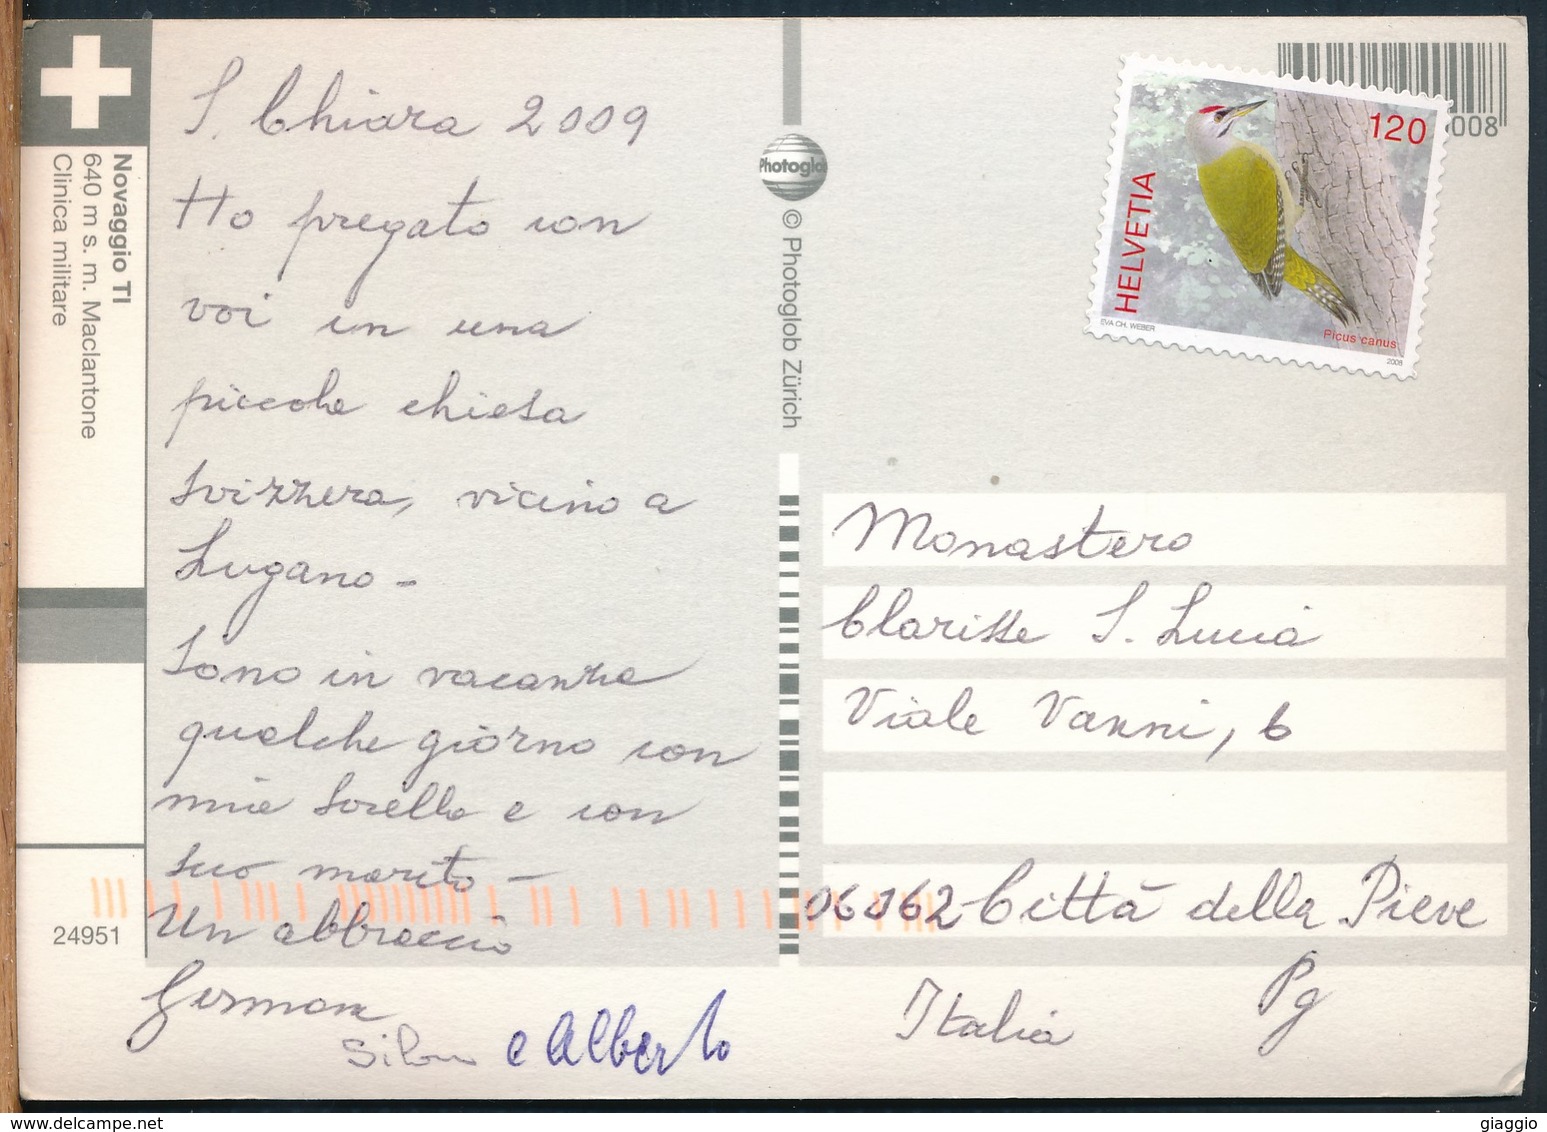 Novaggio TI
640 m s. m. Maclantone
Clinica militare
24951
S. Chiara 2009
Ho pregato con
voi in una
piccola chiesa
svizzera, vicino a
Lugano -
Sono in vacanza
qualche giorno con
mia sorella e con
suo marito -
Un abbraccio
e Alberto
Photoglob
© Photoglob Zürich
008
120
HELVETIA
EVA CH. WEBER
Picus canus
2008
Monastero
Clarisse S. Lucia
Viale Vanni, 6
06062 - Città della Pieve
Pg
Italia
giaggio